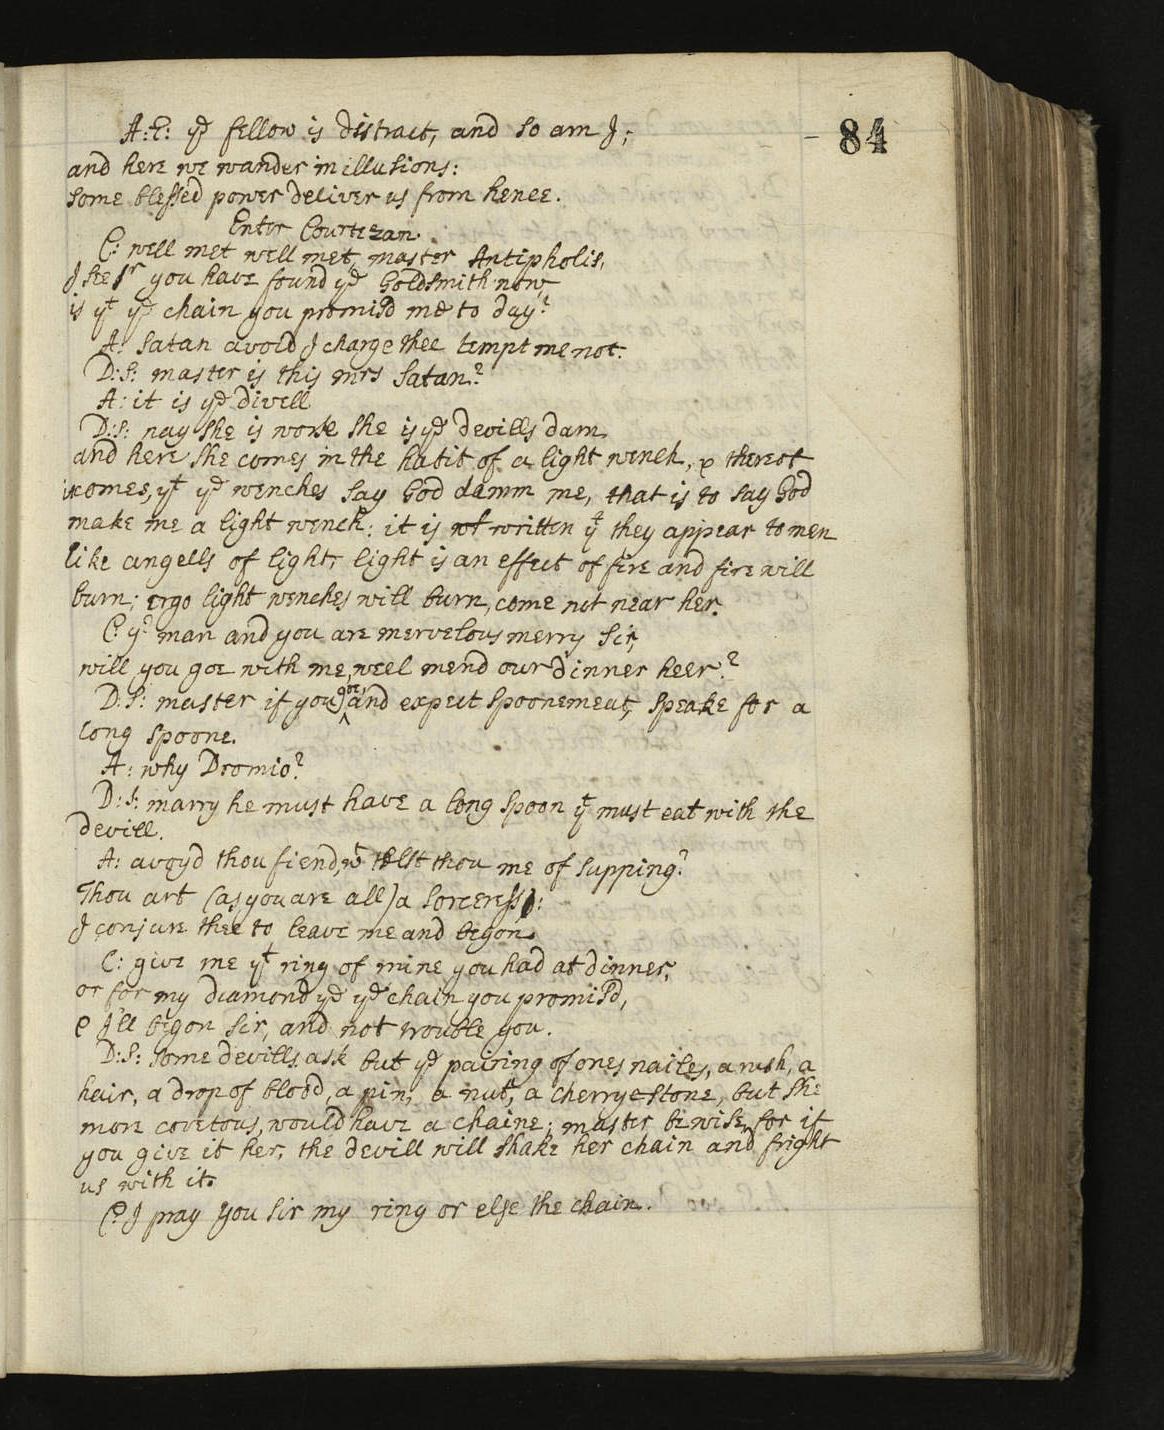 84
A:E: ye fellow is distract, and so am I;
and here we wander in illusions:
some blessed power deliver us from hence.
Enter Courtezan.
C: well met well met, master Antipholis,
I see sr you have found ye Goldsmith now,
is yt ye chain you promisd me to day?
A: Satan avoid I charge thee tempt me not.
D:S: master is this mrs Satan?
A: it is ye divell
D:S: nay she is worse she is ye devills dam,
and here she comes in the habit of a light wench, & thereof
comes, yt ye wenches say God damm me, that is to say God
make me a light wench: it is written yt they appear to men
like angells of light, light is an effect of fire and fire will
burn; ergo light wenches will burn, come not near her.
C: yr man and you are mervelous merry Sir,
will you goe with me, weel mend our dinner heer?
D:S: master if you goe, and expect spoonemeat, speake for a
long spoone.
A: why Dromio?
D:S: marry he must have a long spoon yt must eat with the
devill.
A: avoyd thou fiend, wt telst thou me of supping?
Thou art (as you are all) a sorceress:
I conjure thee to leave me and begon.
C: give me yt ring of mine you had at dinner,
or for my diamond ye chain you promisd,
& I'll begon sir, and not trouble you.
D:S: some devills ask but ye pairing of ones nailes, a rush, a
hair, a drop of blood, a pin, a nut, a cherry-stone, but she
more covetous, would have a chaine; master be wise, for if
you give it her, the devill will shake her chain and fright
us with it.
C: I pray you sir my ring or else the chain.